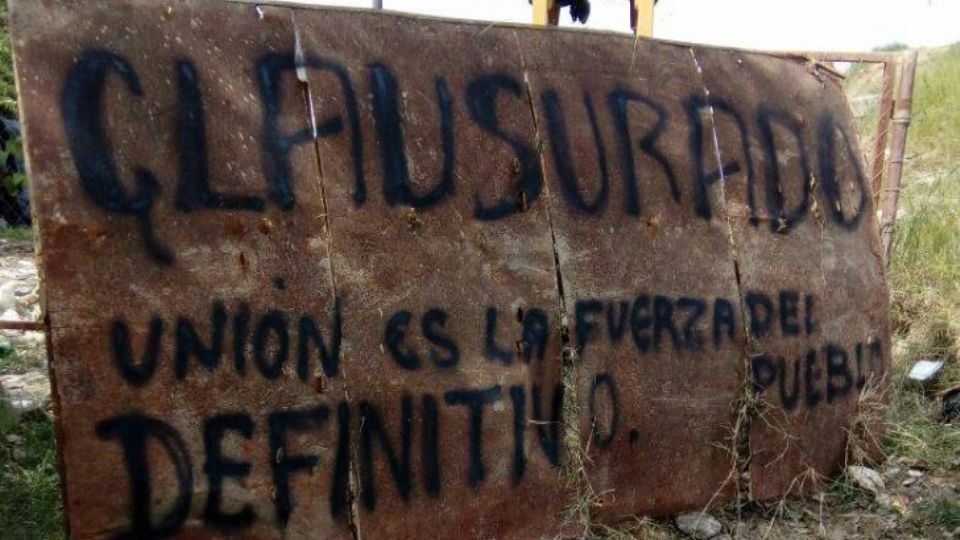 CLAUSURADO
UNIÓN ES LA FUERZA DEL
PUEBLO
DEFINITIVO.